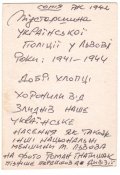 1942
Підстаршина
Української
Поліції у Львові
Роки: 1941-1944
Добрі хлопці
хоронили від
злиднів наше
українське
населення як також
інші національні
меншини м. Львова
на фото Роман Гнатишак